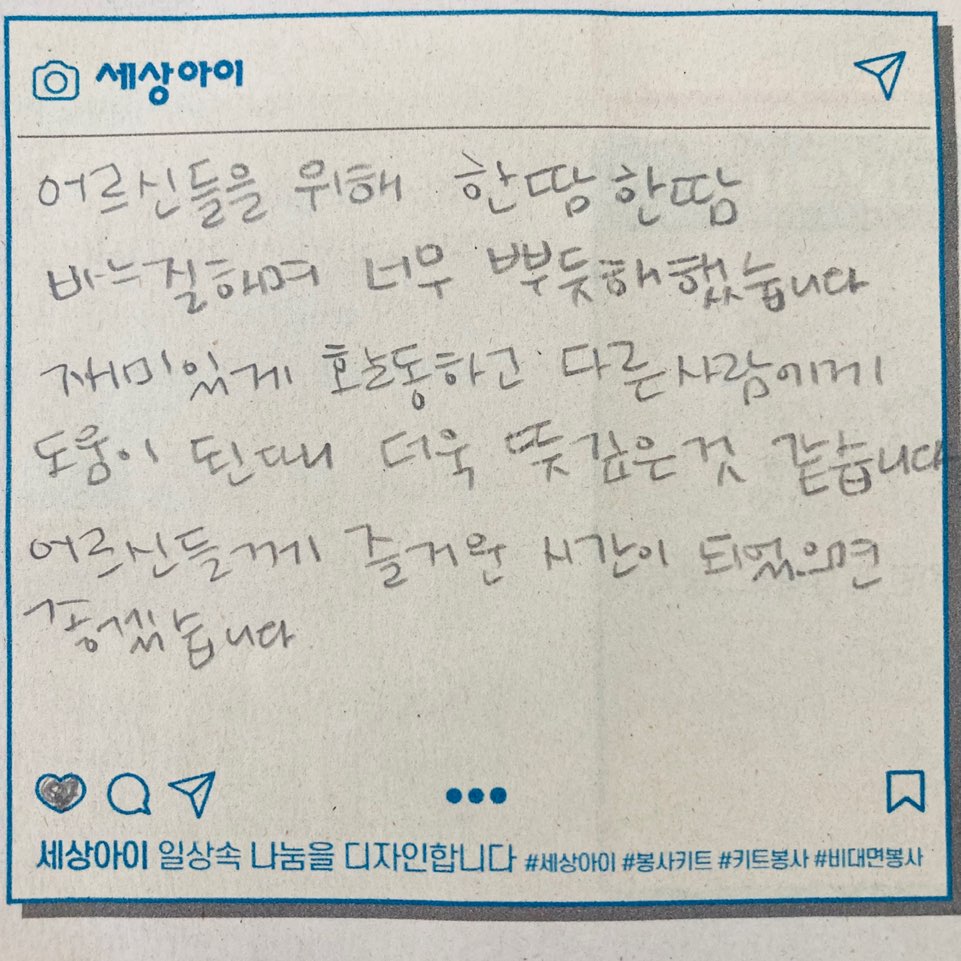 세상아이
어르신들을 위해 한땀한땀
바느질하며 너무 뿌듯해했습니다
재미있게 활동하고 다른사람에게
도움이 된다니 더욱 뜻깊은것 같습니다
어르신들께 즐거운 시간이 되었으면
좋겠습니다
세상아이 일상속 나눔을 디자인합니다 #세상아이 #봉사키트 #키트봉사 #비대면봉사